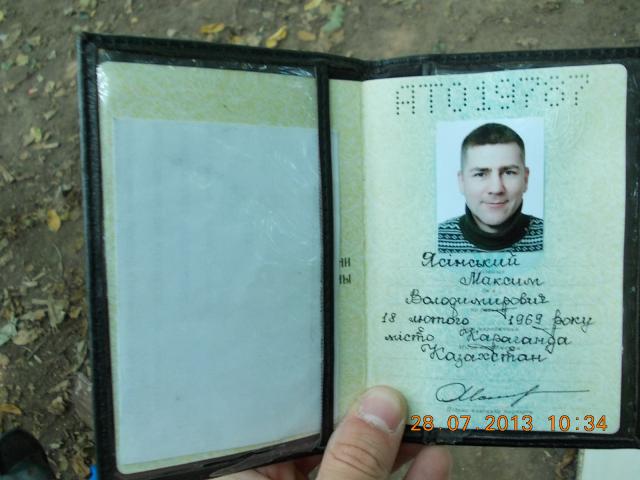 АТ019767
Ясінський
Максим
Володимирович
18 лютого 1969 року
місто Караганда
Казахстан
28.07.2013 10:34